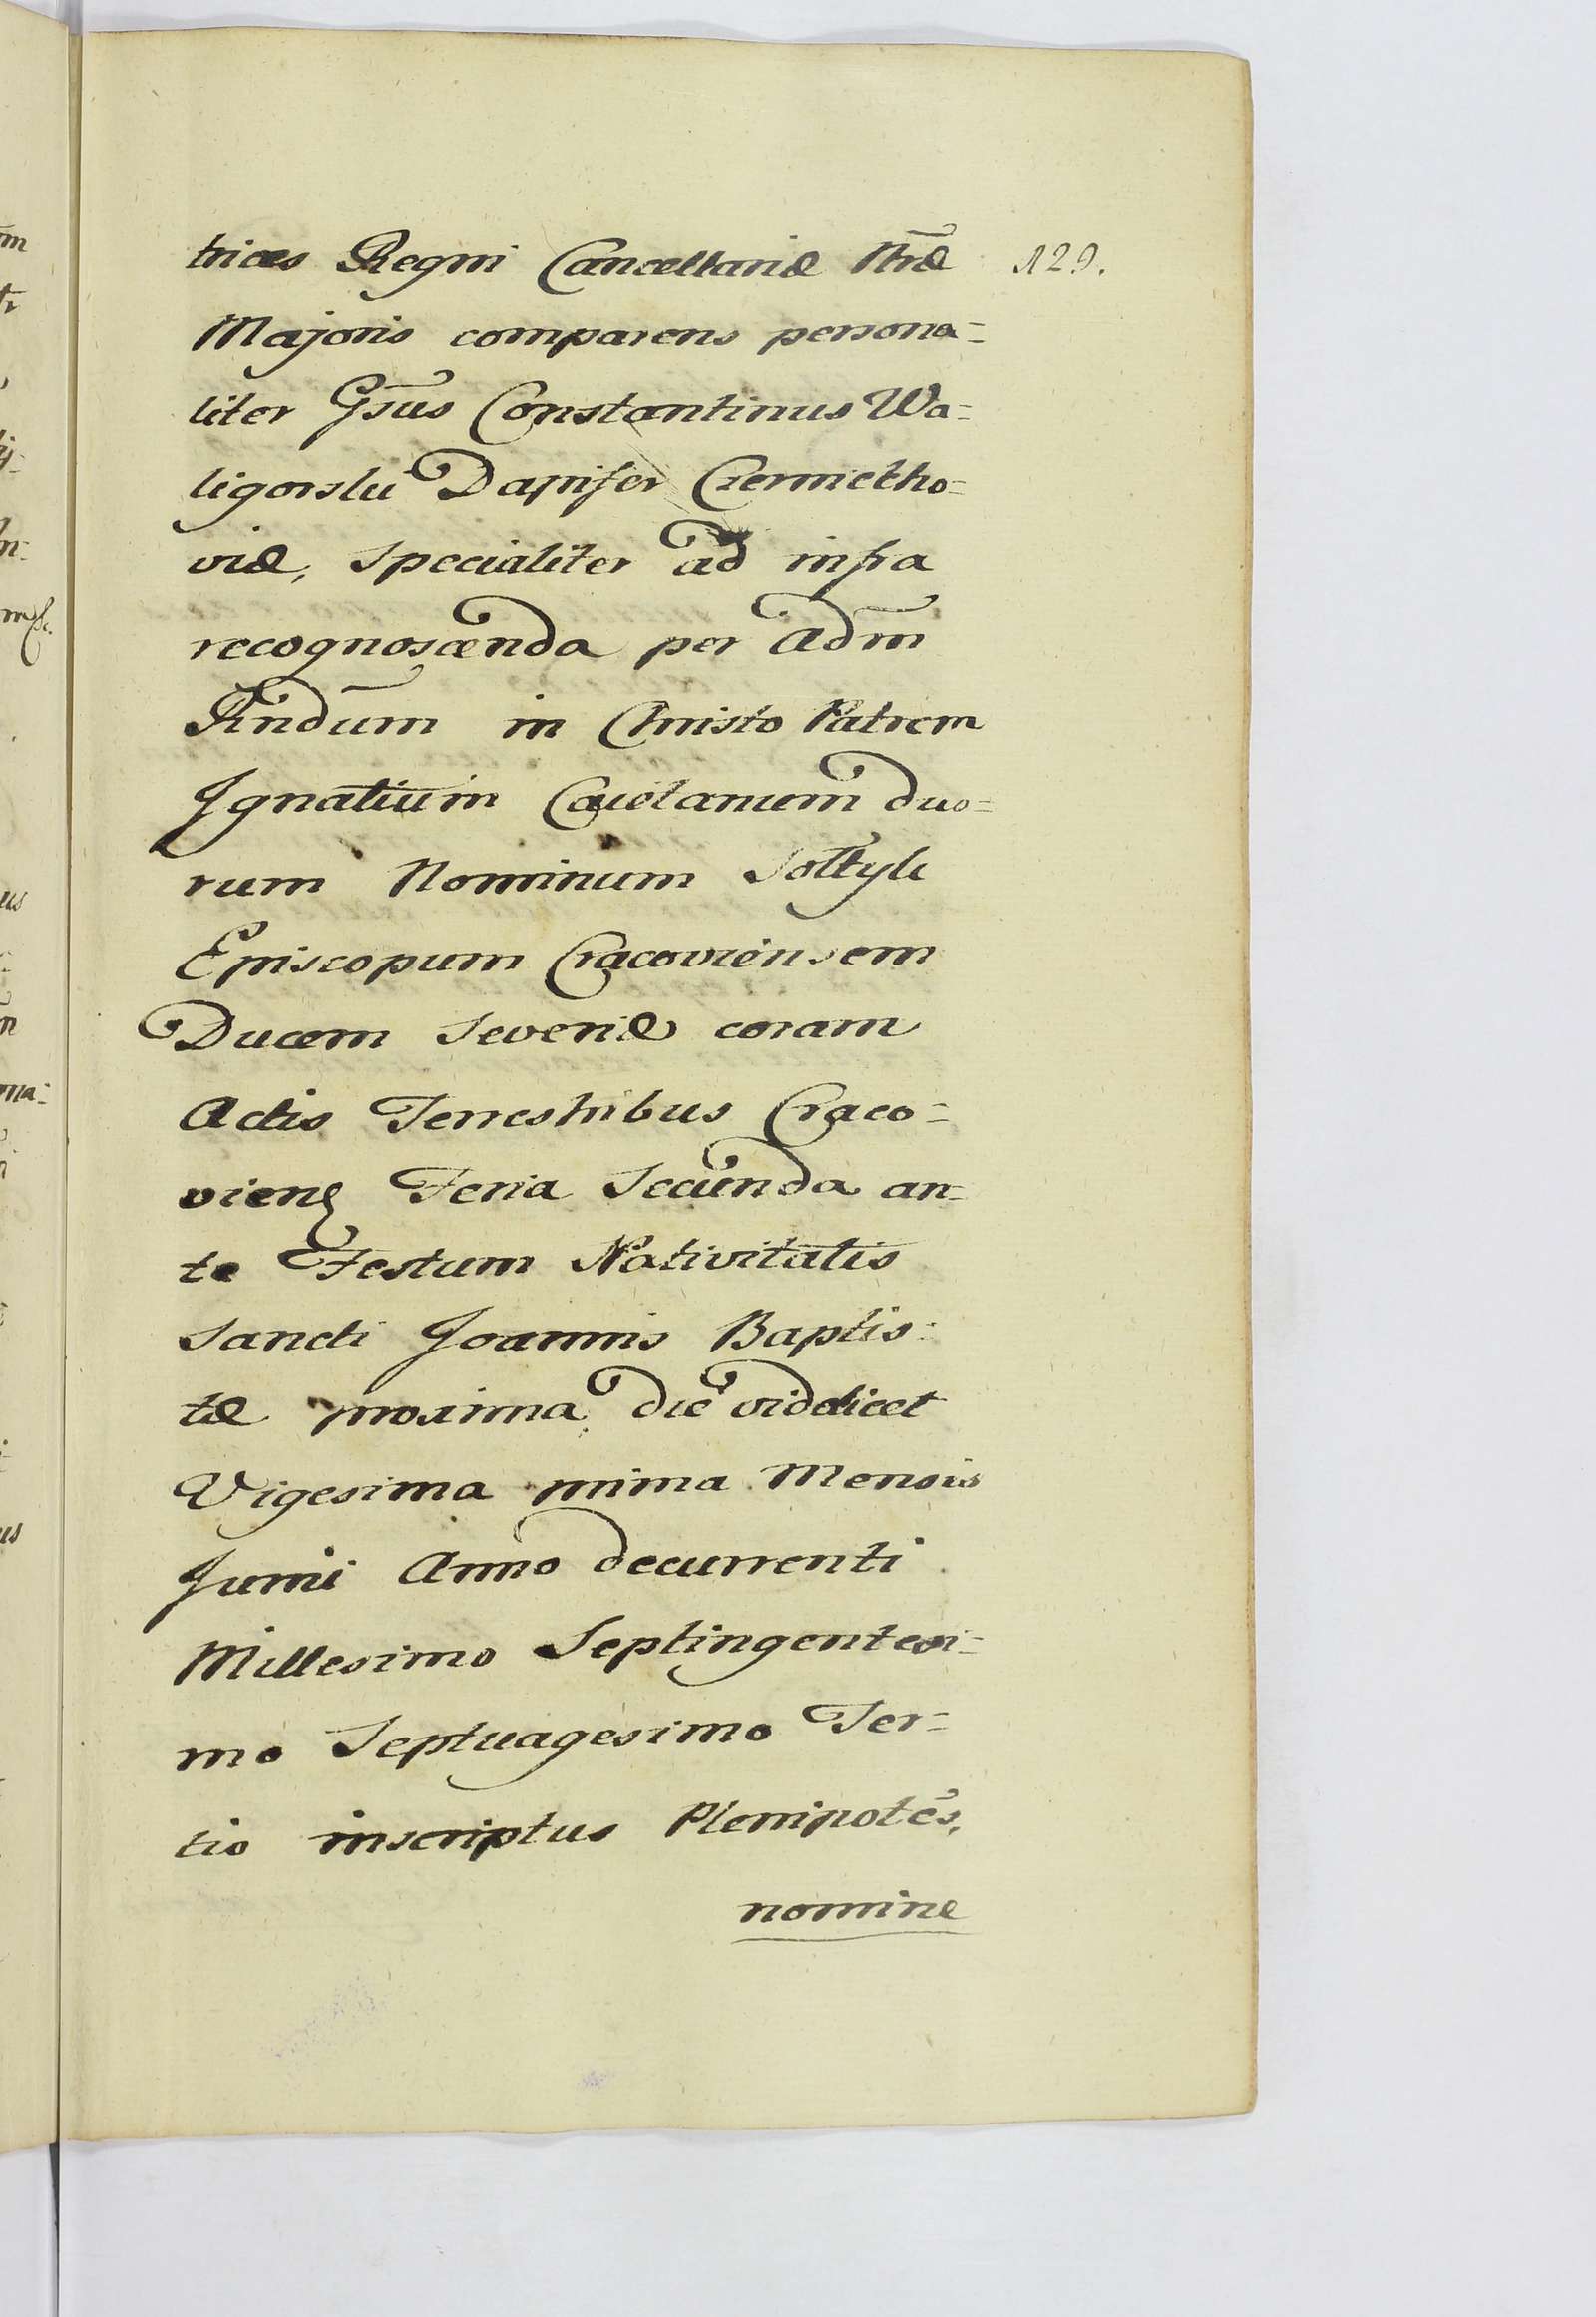 trices Regni Cancellariæ Nræ 129.
Majoris comparens persona=
liter Gsus Constantinus Wa=
ligorski Dapifer Czerniecho=
viæ, specialiter ad infra
recognoscenda per Adm
Rndum in Christo Patrem
Ignatium Caietanum duo=
rum Nominum Sołtyk
Episcopum Cracoviensem
Ducem Severiæ coram
Actis Terrestribus Craco=
vien Feria Secunda an=
te Festum Nativitatis
Sancti Joannis Baptis=
tæ proxima die videlicet
Vigesima prima Mensis
Junii Anno decurrenti
Millesimo Septingentesi=
mo Septuagesimo Ter=
tio inscriptus Plenipotēs,
nomine